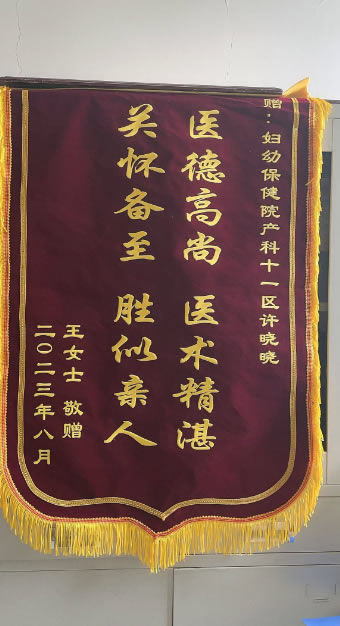 赠：妇幼保健院产科十一区许晓晓
医德高尚 医术精湛
关怀备至 胜似亲人
王女士 敬赠
二〇二三年八月